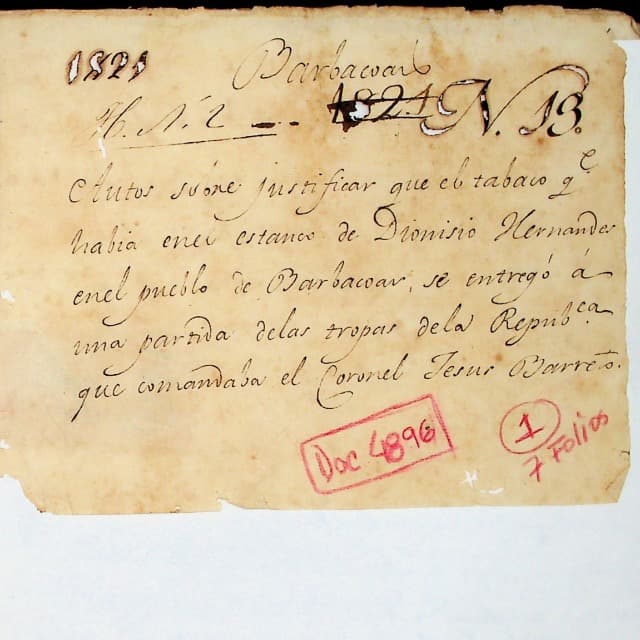 1821
Barbacoas
N.º 2
1821 N. 13.
Autos sobre justificar que el tabaco q.e
habia enel estanco de Dionisio Hernandes
enel pueblo de Barbacoas, se entregó á
una partida delas tropas dela Repub.ca
que comandaba el Coronel Jesus Barreto.
Doc 4896
1
7 Folios